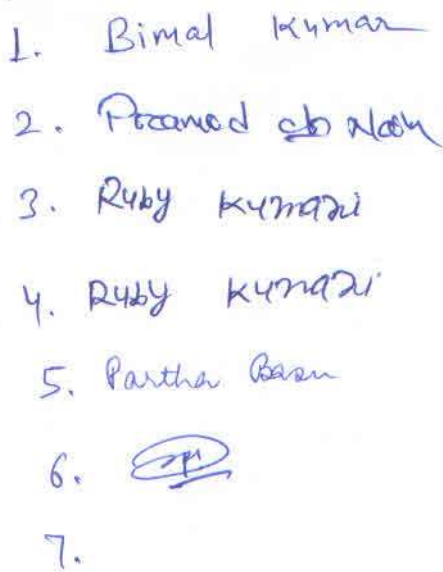 1. Bimal Kumar
2. Pramod
3. Ruby Kumari
4. Ruby Kumari
5. Partha Basu
6.
7.